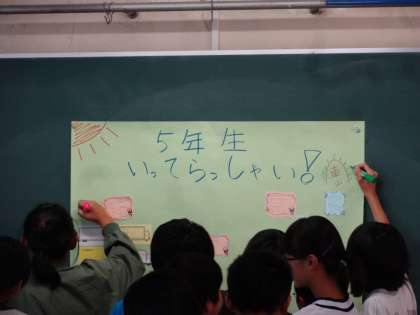 5年生
いってらっしゃい!